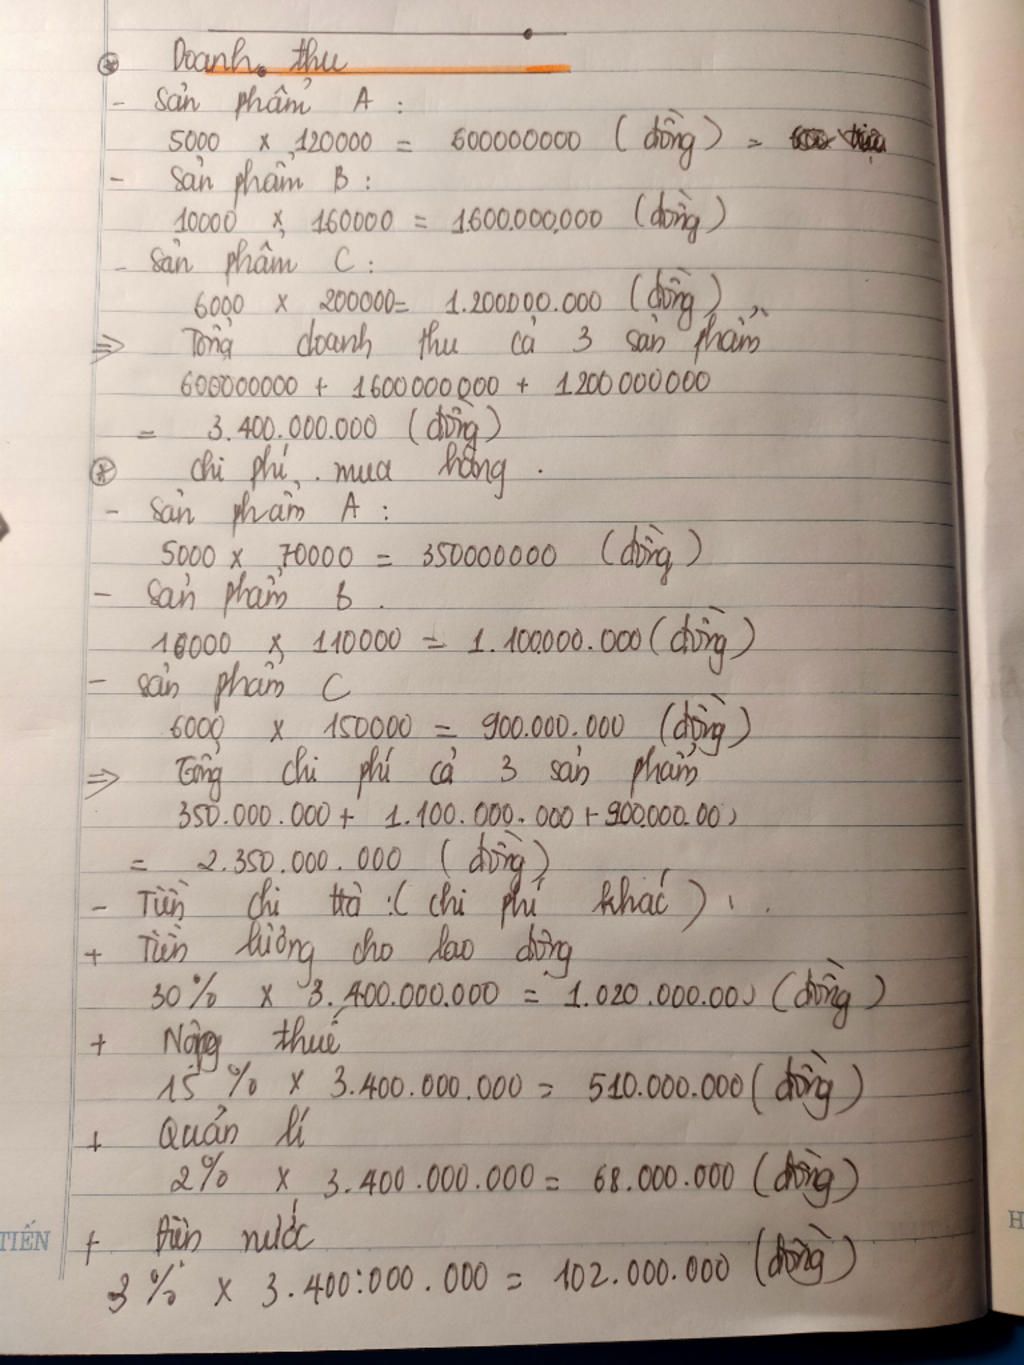 Doanh thu
- Sản phẩm A :
5000 x 120000 = 600000000 (đồng) =
- Sản phẩm B :
10000 x 160000 = 1.600.000.000 (đồng)
- Sản phẩm C :
6000 x 200000 = 1.200.000.000 (đồng)
=> Tổng doanh thu cả 3 sản phẩm
600000000 + 1600000000 + 1200000000
= 3.400.000.000 (đồng)
Chi phí mua hàng .
- Sản phẩm A :
5000 x 70000 = 350000000 (đồng)
- Sản phẩm B .
10000 x 110000 = 1.100.000.000 (đồng)
- Sản phẩm C
6000 x 150000 = 900.000.000 (đồng)
=> Tổng chi phí cả 3 sản phẩm
350.000.000 + 1.100.000.000 + 900.000.000
= 2.350.000.000 (đồng)
- Tiền chi trả : (chi phí khác)
+ Tiền lương cho lao động
30% x 3.400.000.000 = 1.020.000.000 (đồng)
+ Nộp thuế
15% x 3.400.000.000 = 510.000.000 (đồng)
+ Quản lí
2% x 3.400.000.000 = 68.000.000 (đồng)
TIẾN
+ Điện nước
3% x 3.400.000.000 = 102.000.000 (đồng)
H